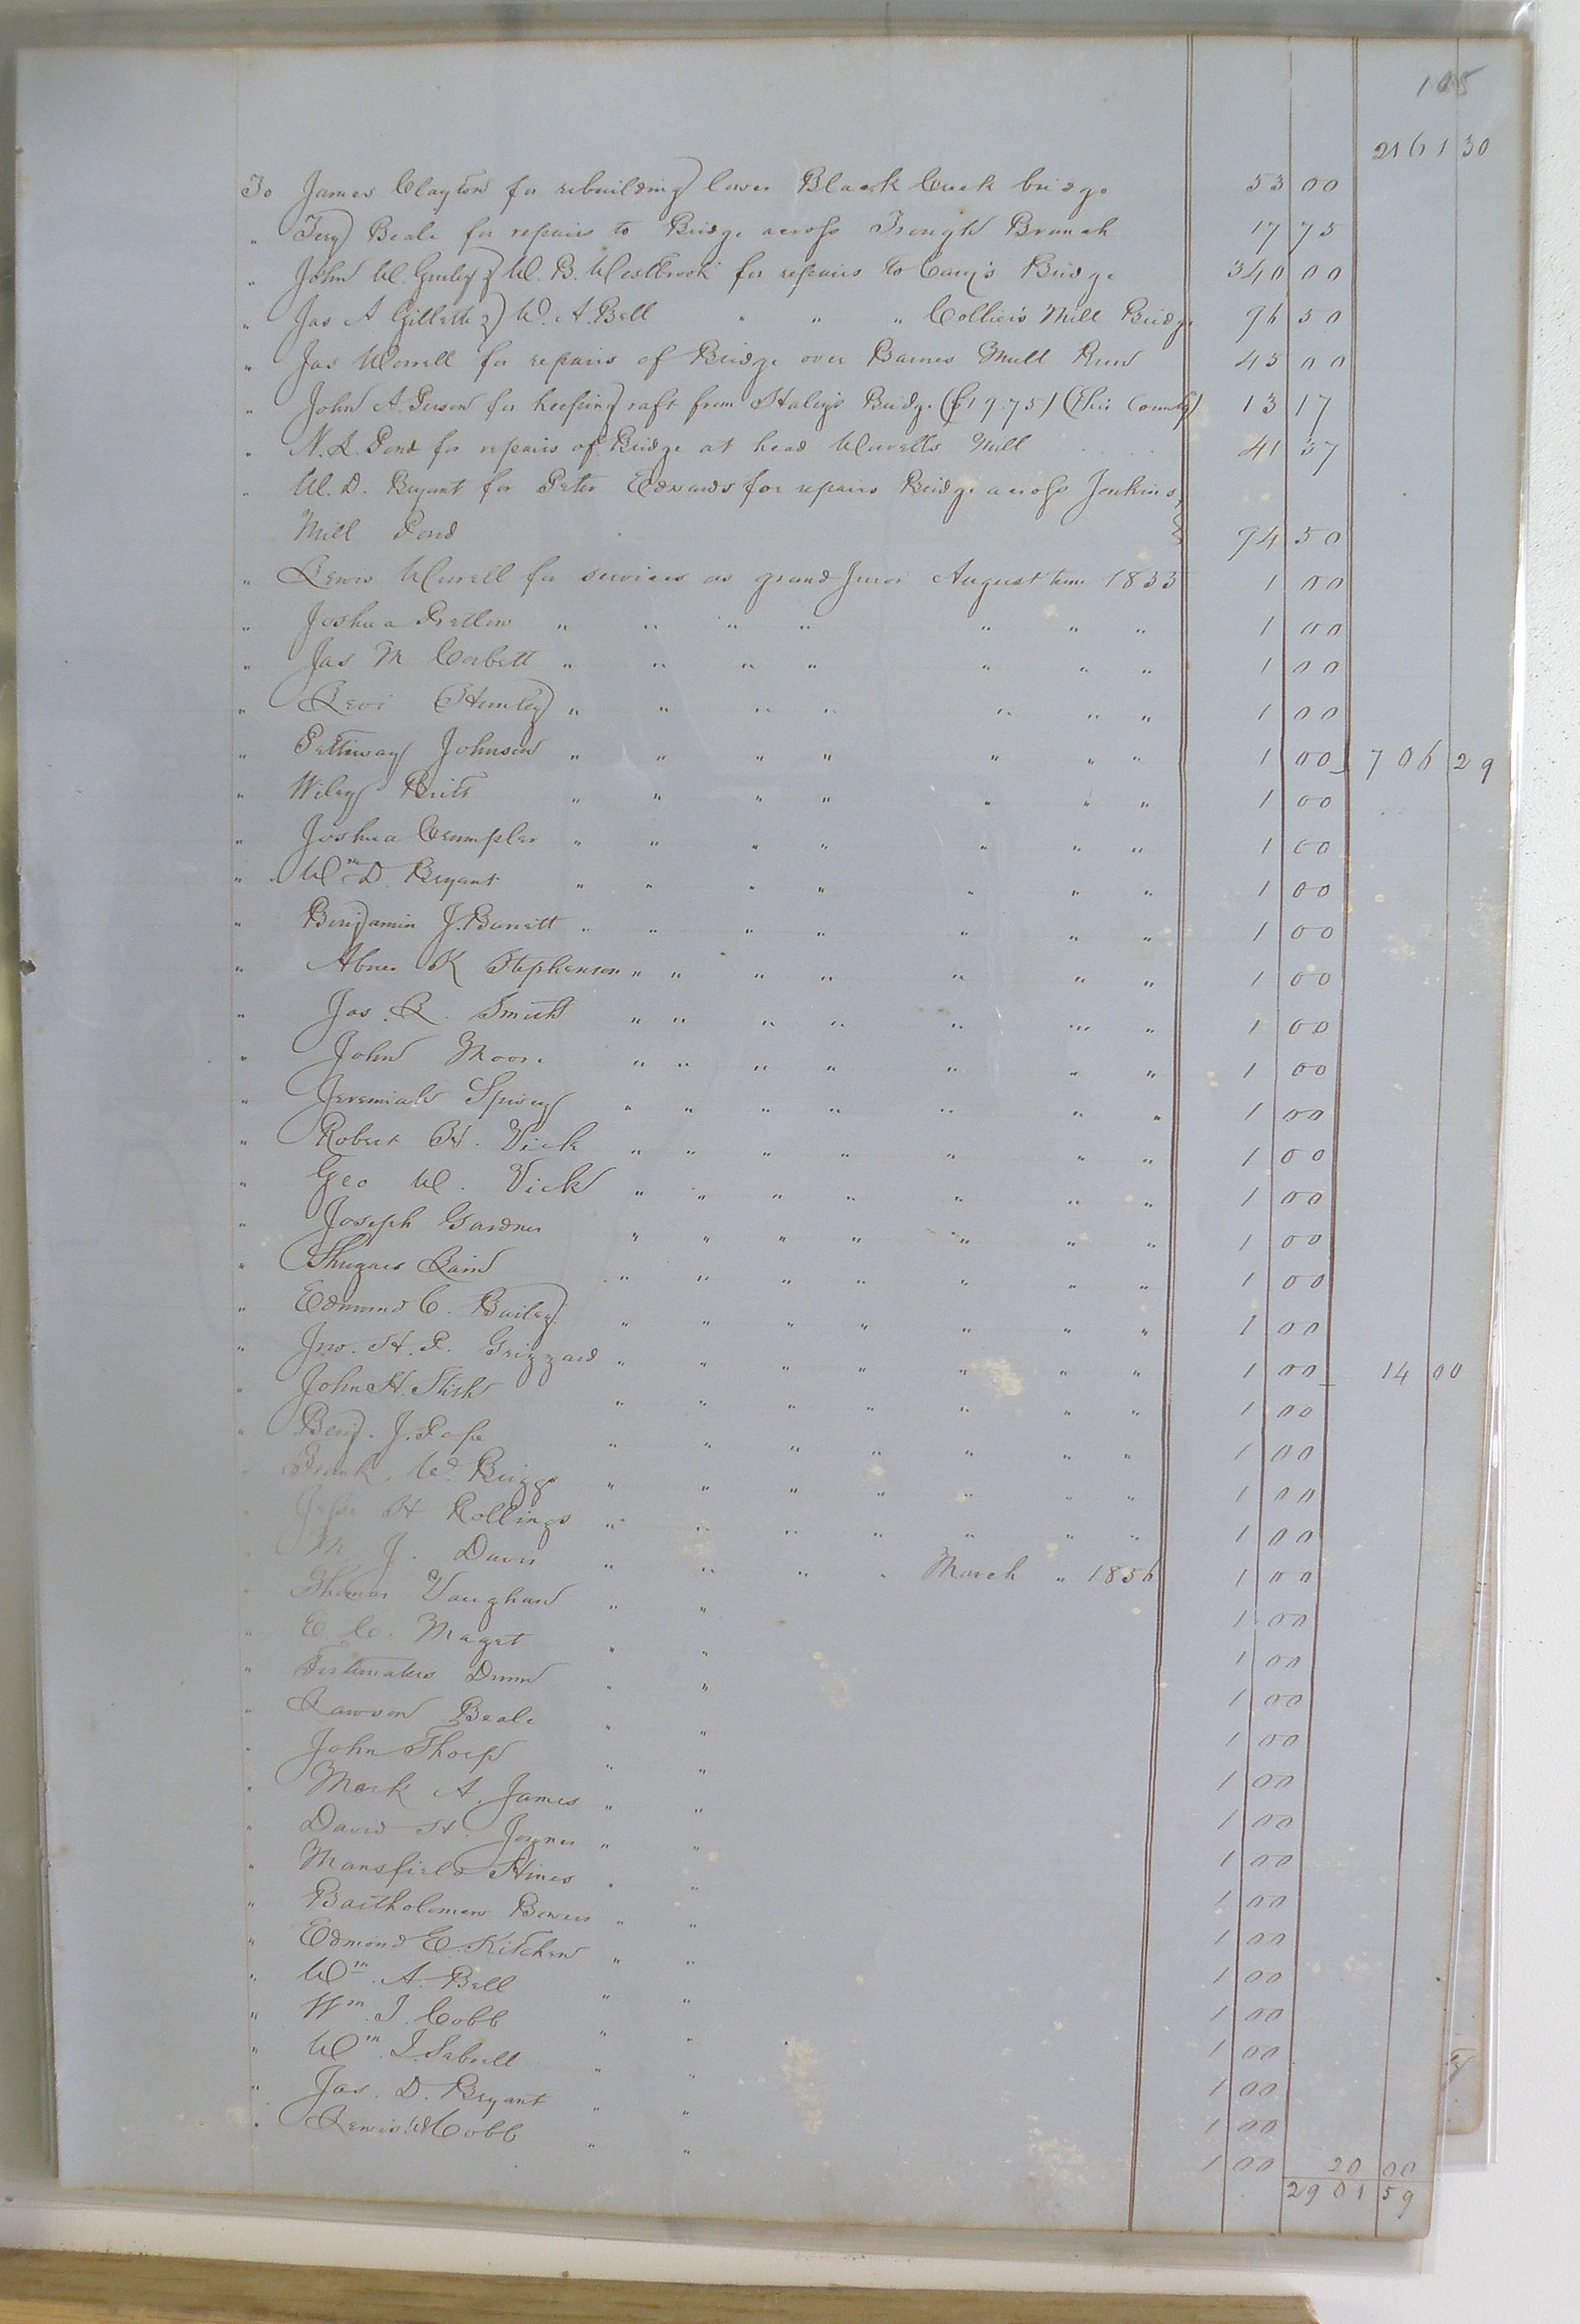 105
2161 30
To James Clayton for rebuilding lower Black Creek bridge 53 00
" Beale for repairs to Bridge across Trough Branch 17 75
" John W. Gurley & W. B. Westbrook for repairs to Cary's Bridge 340 00
" Jas A Gillette & W. A. Bell " " " Collier's Mill Bridge 96 50
" Jas Worrell for repairs of Bridge over Barnes Mill Run 45 00
" John A. Person for keeping raft from Haley's Bridge ($19.75) (This County) 13 17
" N. L. Pond for repairs of Bridge at head Worrells Mill 41 37
" W. D. Bryant for Peter Edwards for repairs Bridge across Jenkins
Mill Pond 94 50
" Lewis Worrell for services as grand Juror August term 1855 1 00
" Joshua Pretlow " " " " " " " 1 00
" Jas M Corbett " " " " " " " 1 00
" Levi Huntley " " " " " " " 1 00
" Pettway Johnson " " " " " " " 1 00 706 29
" Wiley Britt " " " " " " " 1 00
" Joshua Crumpler " " " " " " " 1 00
" Wm D. Bryant " " " " " " " 1 00
" Benjamin J. Barrett " " " " " " " 1 00
" Abner K Stephenson " " " " " " " 1 00
" Jas. R. Smith " " " " " " " 1 00
" John Moore " " " " " " " 1 00
" Jeremiah Spivey " " " " " " " 1 00
" Robert H. Vick " " " " " " " 1 00
" Geo W. Vick " " " " " " " 1 00
" Joseph Gardner " " " " " " " 1 00
" Shugars Lain " " " " " " " 1 00
" Edmund C. Bailey " " " " " " " 1 00
" Jno. H. P. Grizzard " " " " " " " 1 00 14 00
" John H. Stith " " " " " " " 1 00
" Benj. J. Pope " " " " " " " 1 00
" Frank Wd. Briggs " " " " " " " 1 00
" Jesse H Rollings " " " " " " " 1 00
" M J. Davis " " " " March " 1856 1 00
" Thomas Vaughan " " 1 00
" E C. Maget " " 1 00
" Dunn " " 1 00
" Lawson Beale " " 1 00
" John Thorp " " 1 00
" Mark A. James " " 1 00
" David H. Joyner " " 1 00
" Mansfield Hines " " 1 00
" Bartholomew Bowers " " 1 00
" Edmond E. Kitchen " " 1 00
" Wm. A. Bell " " 1 00
" Wm. J. Cobb " " 1 00
" Wm. J. Sebrell " " 1 00
" Jas. D. Bryant " " 1 00
" Lewis W Cobb " " 1 00 20 00
2901 59